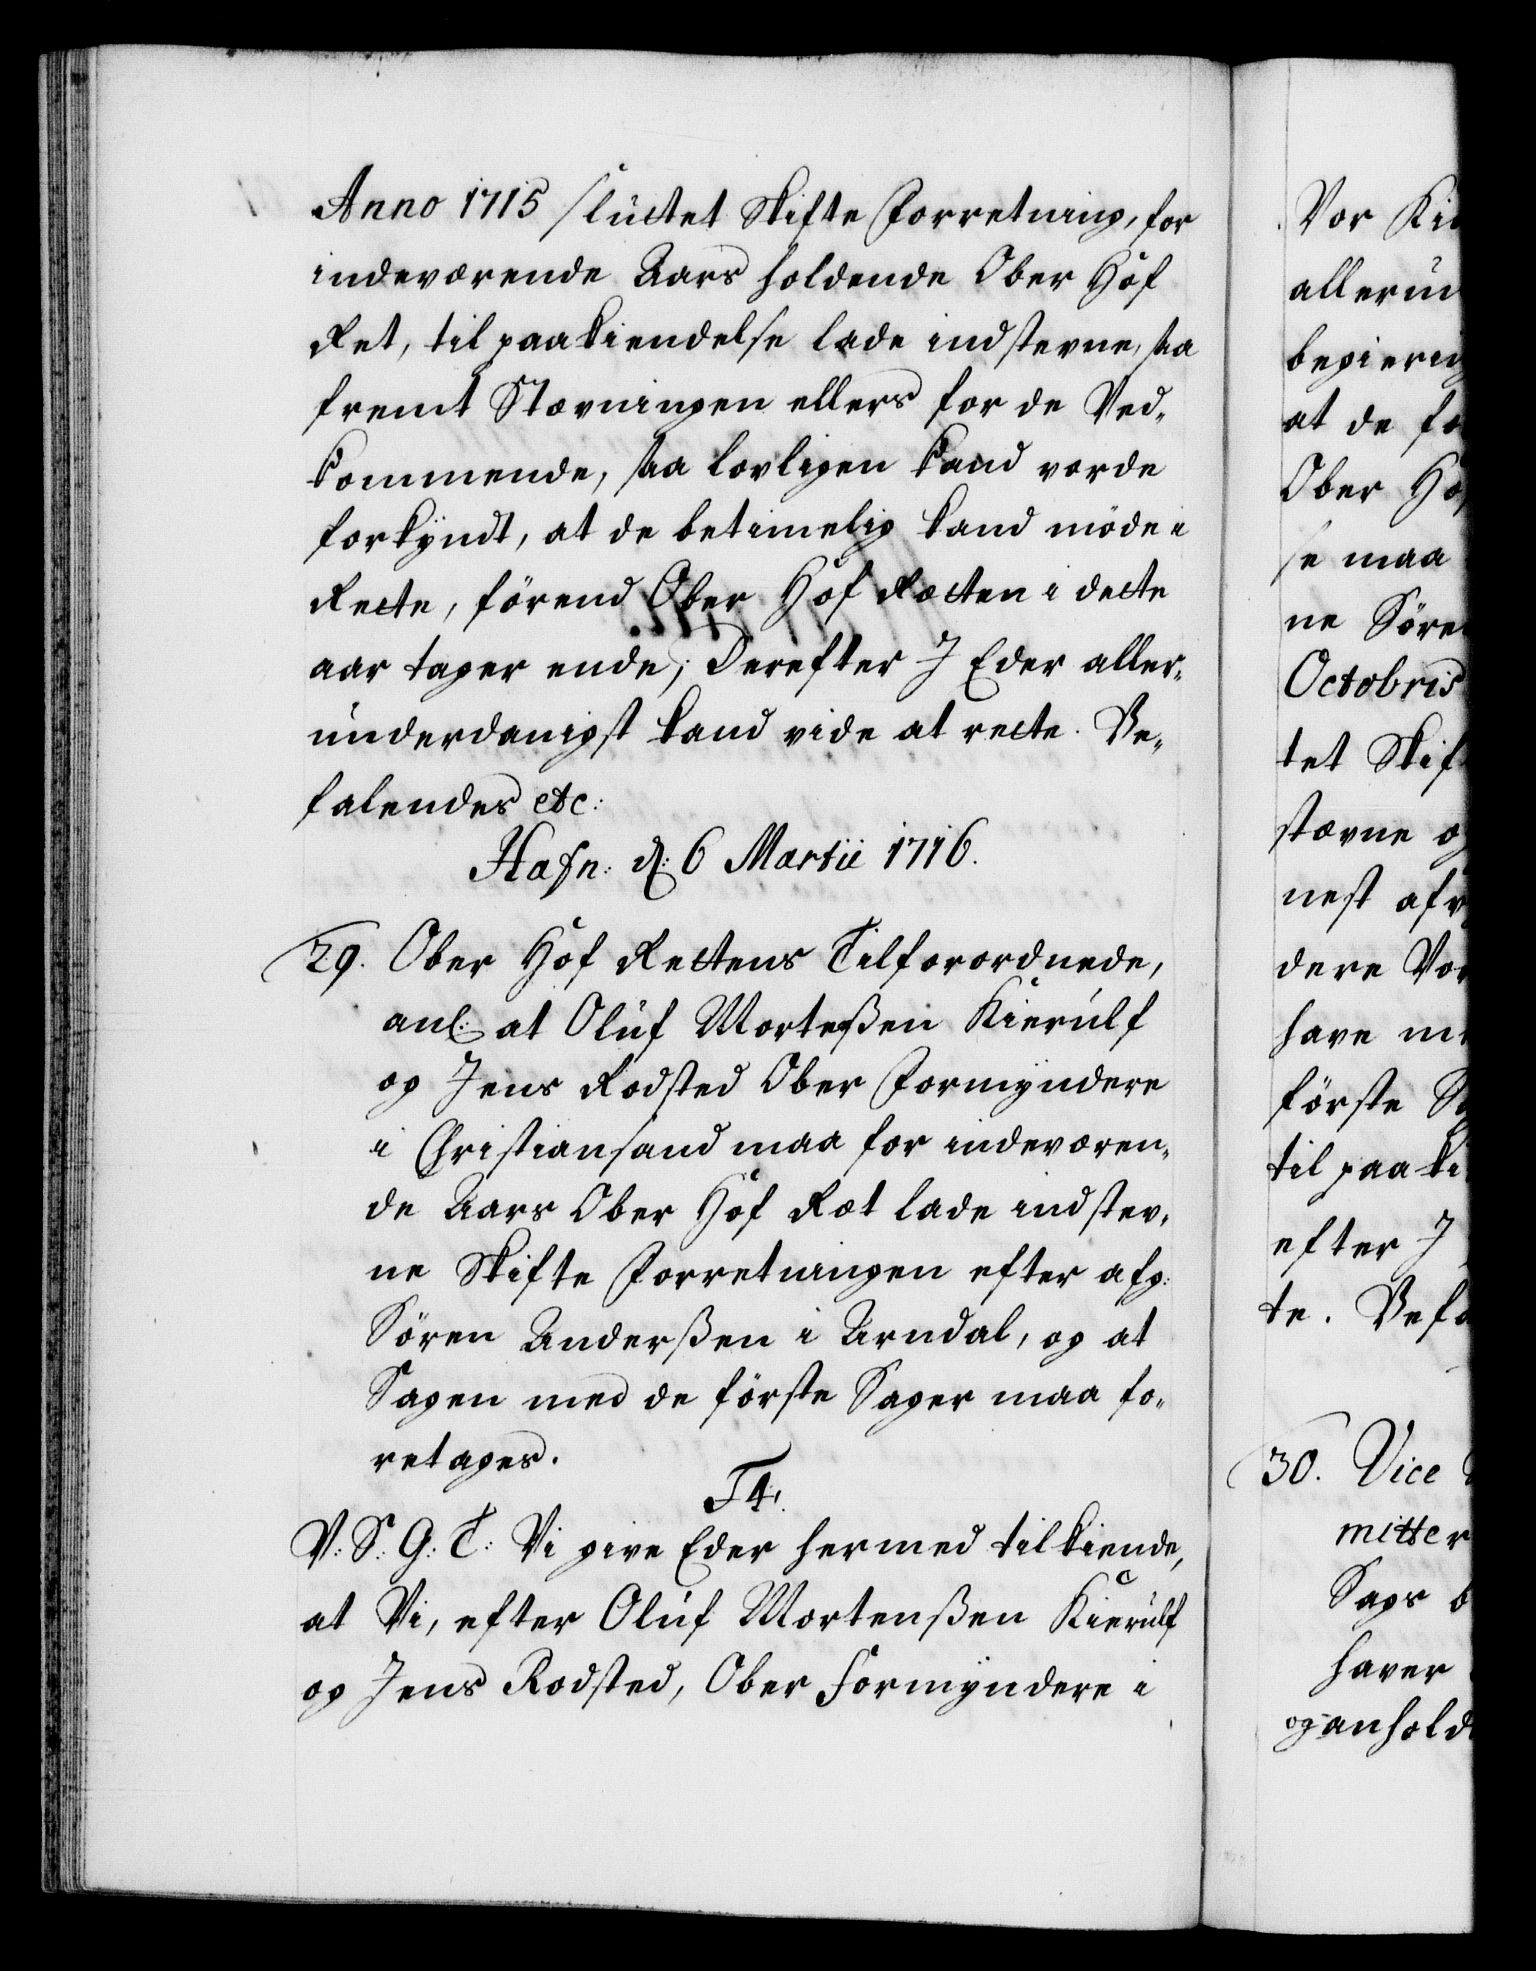 Anno 1715 sluttet Skifte Forretning, for
indeværende Aars holdende Ober Hof
Ret, til paakiendelse lade indstevne, saa
fremt Stævningen ellers for de Ved-
kommende, saa lovligen kand vorde
forkyndt, at de betimelig kand möde i
Rette, förend Ober Hof Rætten i dette
aar tager ende; Derefter I Eder aller-
underdanigst kand vide at rette. Be-
falendes etc:
Hafn: d: 6 Martii 1716.
29. Ober Hof Rettens Tilforordnede,
anl: at Oluf Morteßen Kierulf
og Jens Rodsted Ober Formyndere
i Christiansand maa for indeværen-
de Aars Ober Hof Ræt lade indstev-
ne Skifte Forretningen efter afg:
Sören Anderßen i Arndal, og at
Sagen med de förste Sager maa fo-
retages.
F4.
V: S: G: T: Vi give Eder hermed tilkiende,
at Vi, efter Oluf Mortenßen Kierulf
og Jens Rodsted, Ober Formyndere i
Vor
allerun
begiering
at de
Ober Hof
se maa
ne Sören
Octobris
tet Skif
stævne
nest
dere Vor
have
förste
til paaki
efter I
te. Befa
30. Vice
mitter
Sags
haver
og anhold